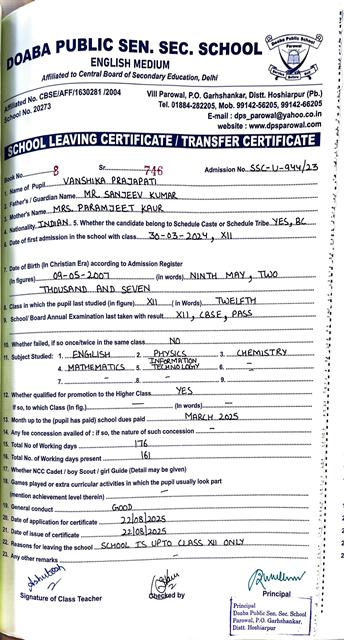 DOABA PUBLIC SEN. SEC. SCHOOL
ENGLISH MEDIUM
Affiliated to Central Board of Secondary Education, Delhi
Doaba Public School
Parowal
Affiliated No. CBSE/AFF/1630281 /2004
School No. 20273
Vill Parowal, P.O. Garhshankar, Distt. Hoshiarpur (Pb.)
Tel. 01884-282205, Mob. 99142-56205, 99142-66205
E-mail : dps_parowal@yahoo.co.in
website : www.dpsparowal.com
SCHOOL LEAVING CERTIFICATE / TRANSFER CERTIFICATE
Book No. 8 Sr. 746 Admission No. SSC-U-944/23
1. Name of Pupil VANSHIKA PRAJAPATI
2. Father's / Guardian Name MR. SANJEEV KUMAR
3. Mother's Name MRS. PARAMJEET KAUR
4. Nationality INDIAN 5. Whether the candidate belong to Schedule Caste or Schedule Tribe YES, BC
6. Date of first admission in the school with class 30-03-2024, XII
7. Date of Birth (In Christian Era) according to Admission Register
(In figures) 09-05-2007 (in words) NINTH MAY, TWO
THOUSAND AND SEVEN
8. Class in which the pupil last studied (in figure) XII ( in Words) TWELFTH
9. School/ Board Annual Examination last taken with result XII, CBSE, PASS
10. Whether failed, if so once/twice in the same class NO
11. Subject Studied: 1. ENGLISH 2. PHYSICS 3. CHEMISTRY
4. MATHEMATICS 5. INFORMATION TECHNOLOGY 6. -
7. - 8. - 9.
12. Whether qualified for promotion to the Higher Class YES
If so, to which Class (In fig.) — (In words) —
13. Month up to the (pupil has paid) school dues paid MARCH 2025
14. Any fee concession availed of : if so, the nature of such concession -
15. Total No of Working days 176
16. Total No. of Working days present 161
17. Whether NCC Cadet / boy Scout / girl Guide (Detail may be given)
18. Games played or extra curricular activities in which the pupil usually look part
mention achievement level therein) —
19. General conduct GOOD
20. Date of application for certificate 22/08/2025
21. Date of issue of certificate 22/08/2025
22. Reasons for leaving the school SCHOOL IS UPTO CLASS XII ONLY
23. Any other remarks -
Signature of Class Teacher
Checked by
Principal
Principal
Doaba Public Sen. Sec. School
Parowal, P.O. Garhshankar,
Distt. Hoshiarpur